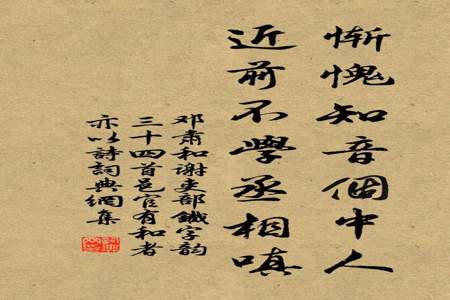 惭愧知音個中人
近前不學丞相嗔
邓肃和谢吏部鐵字韵
三十四首邑官有和者
亦以詩詞典網集